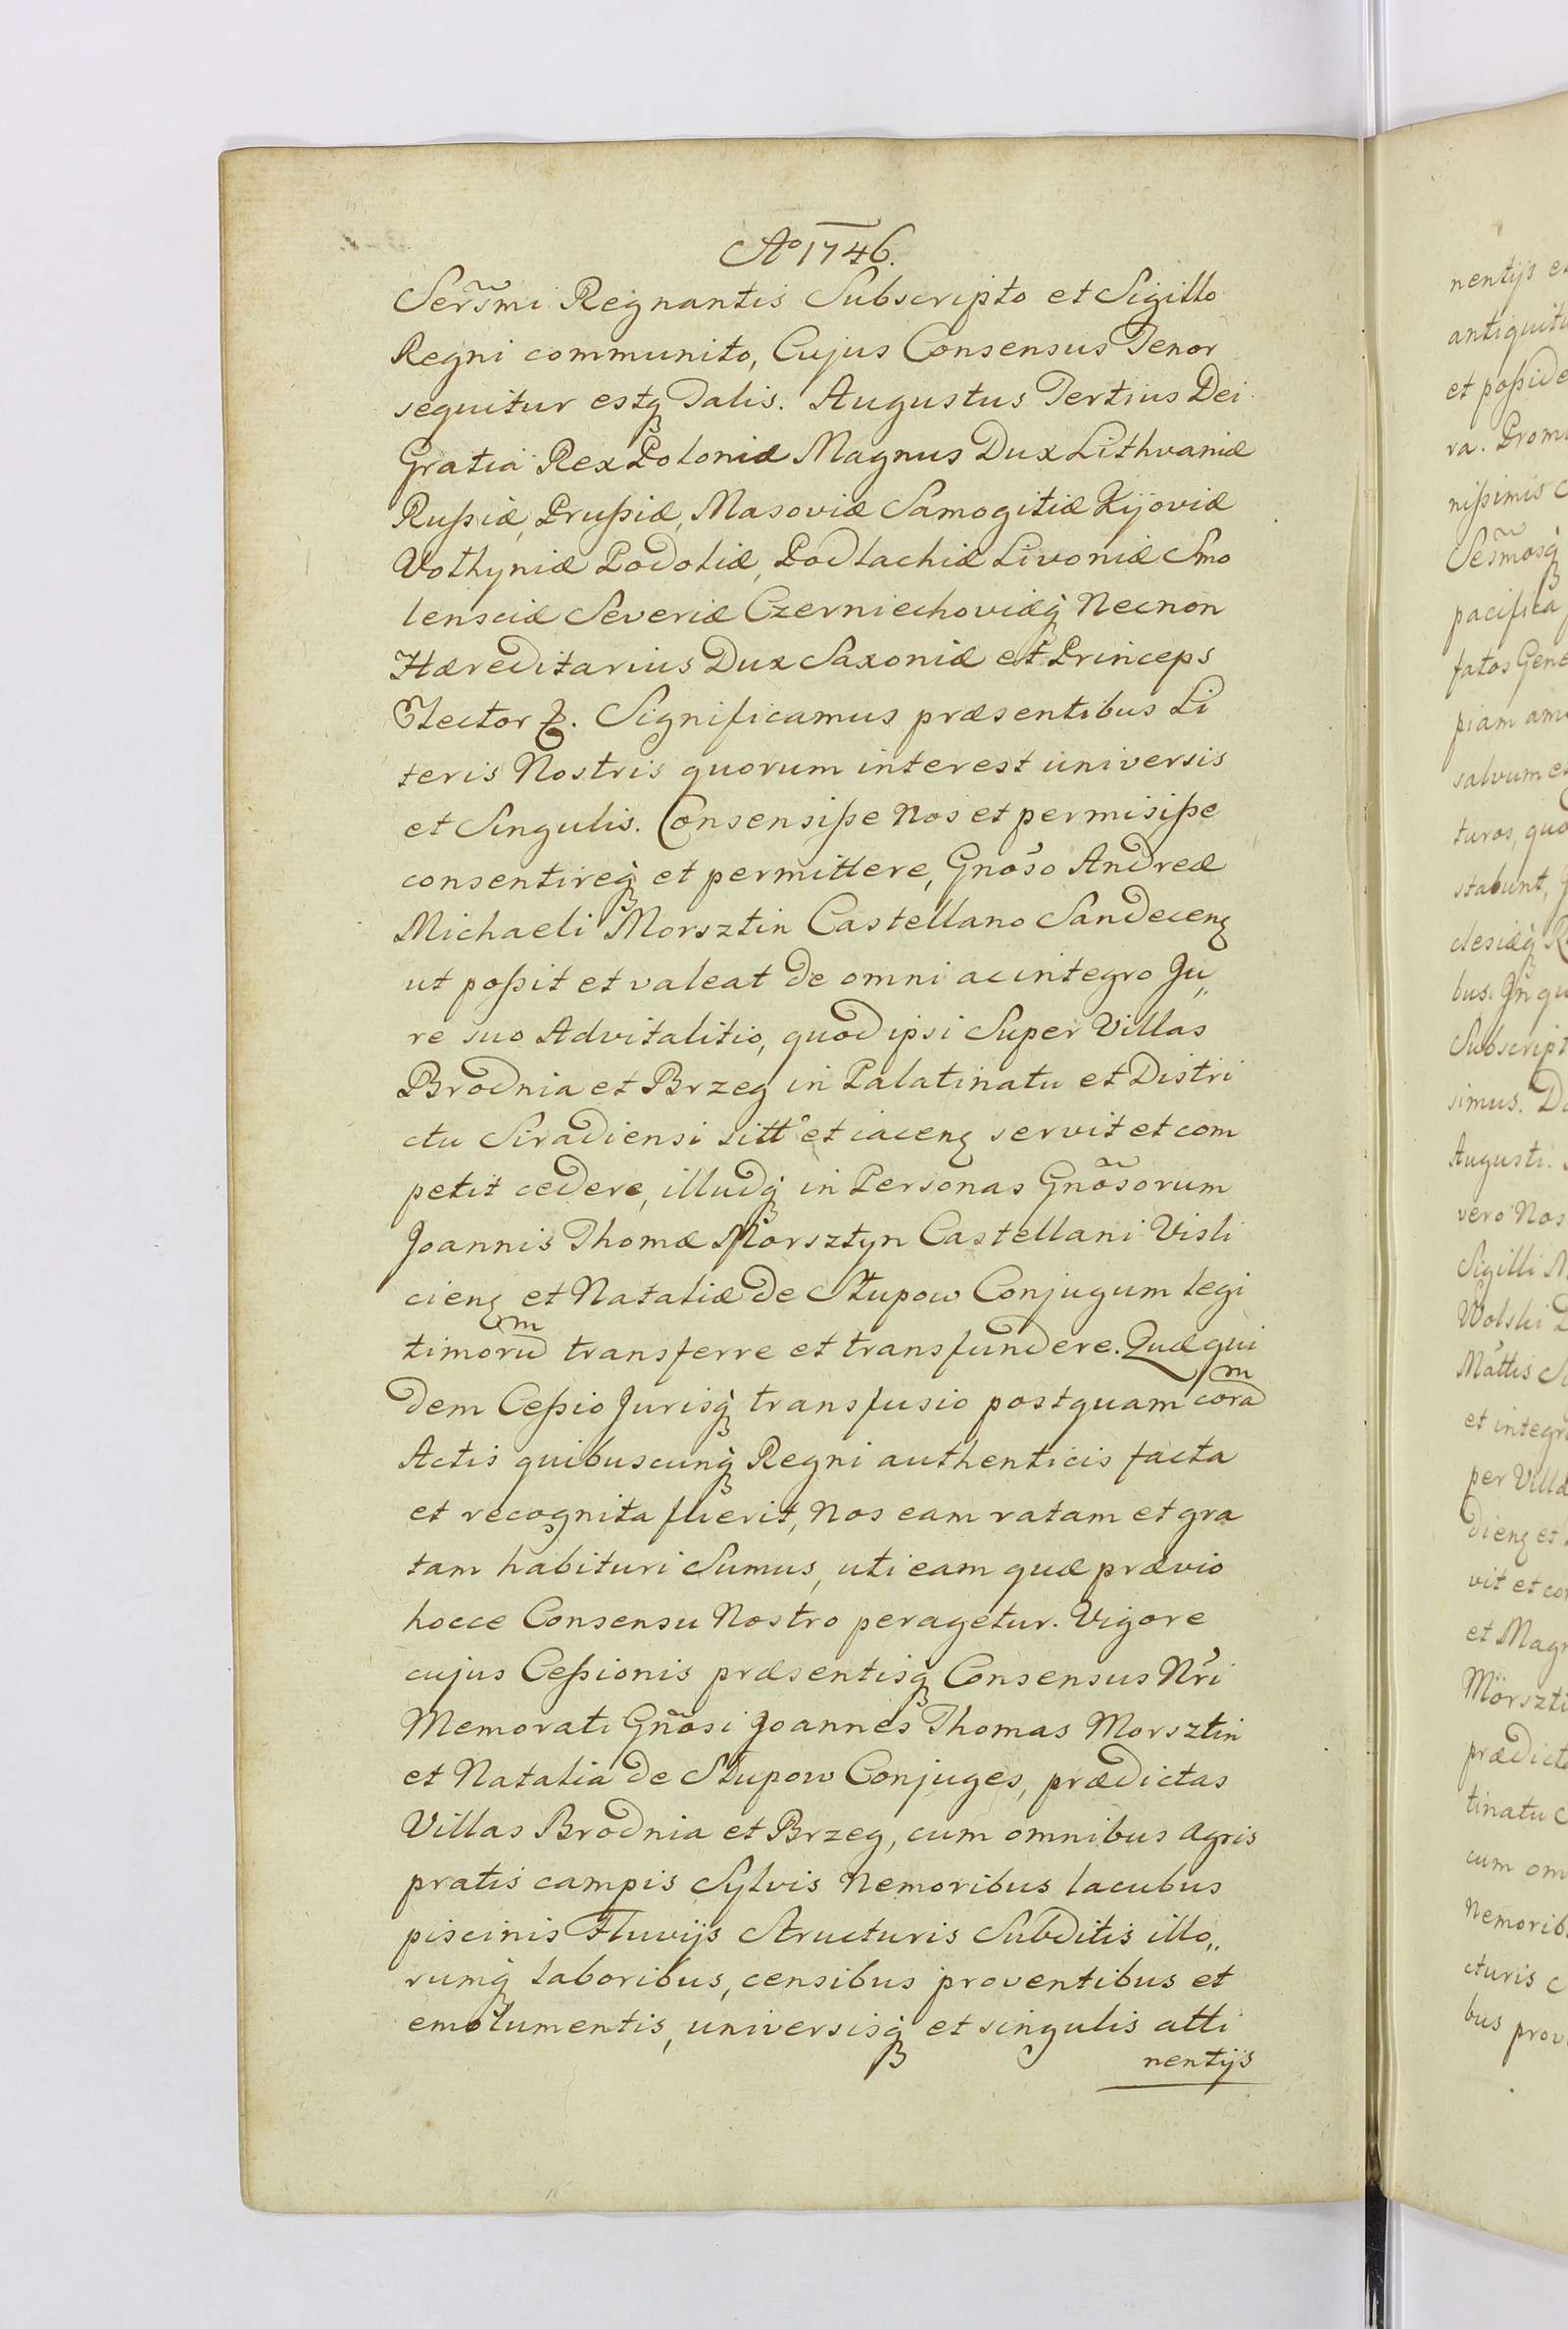 Ao 1746.
Sers̃mi Regnantis Subscripto et Sigillo
Regni communito, Cujus Consensus Tenor
sequitur estq́ Talis. Augustus Tertius Dei
Gratia Rex Poloniæ Magnus Dux Lithvaniæ
Rußiæ, Prußiæ, Masoviæ Samogitiæ Kijoviæ
Volhyniæ Podoliæ, Podlachiæ Livoniæ Smo
lensciæ Severiæ Czerniechoviæq́ Necnon
Hæreditarius Dux Saxoniæ et Princeps
Elector &. Significamus præsentibus Li
teris Nostris quorum interest universis
et Singulis. Consensiße Nos et permisiße
consentireq́ et permittere, Gnoso Andreæ
Michaeli Morsztin Castellano Sandecenꝫ
ut poßit et valeat de omni ac integro Ju„
re suo Advitalitio, quod ipsi Super Villas
Brodnia et Brzeg in Palatinatu et Distri
ctu Siradiensi sitt° et iacenꝫ servit et com
petit cedere, illudq́ in Personas Gnõsorum
Joannis Thomæ Morsztyn Castellani Visli
cienꝫ et Nataliæ de Słupow Conjugum legi
timorum transferre et transfundere. Quæqui
dem Ceßio Jurisq́ transfusio postquam coram
Actis quibuscunq́ Regni authenticis facta
et recognita fuerit, Nos eam ratam et gra
tam habituri Sumus, uti eam quæ prævio
hocce Consensu Nostro peragetur. Vigore
cujus Ceßionis præsentisq́ Consensus Nri
Memorati Gnõsi Joannes Thomas Morsztin
et Natalia de Słupow Conjuges, prædictas
Villas Brodnia et Brzeg, cum omnibus agris
pratis campis Sylvis Nemoribus lacubus
piscinis Fluvijs Structuris Subditis illo„
rumq́ laboribus, censibus proventibus et
emolumentis, universisq́ et singulis atti
nentijs
nentijs
antiquit
et poßide
ra. Prom
nißimis c
Sesm̃osq́
pacifica
fatos Gene
piam am
salvum e
turos, quo
stabunt,
clesiæq́ R
bus. Jn qu
Subscript
simus. Da
Augusti.
vero Nos
Sigilli
Wolski
Mattis
et integr
per Villa
dienꝫ et
vit et co
et Mag
Morszti
prædict
tinatu
cum om
Nemorib
cturis
bus prov